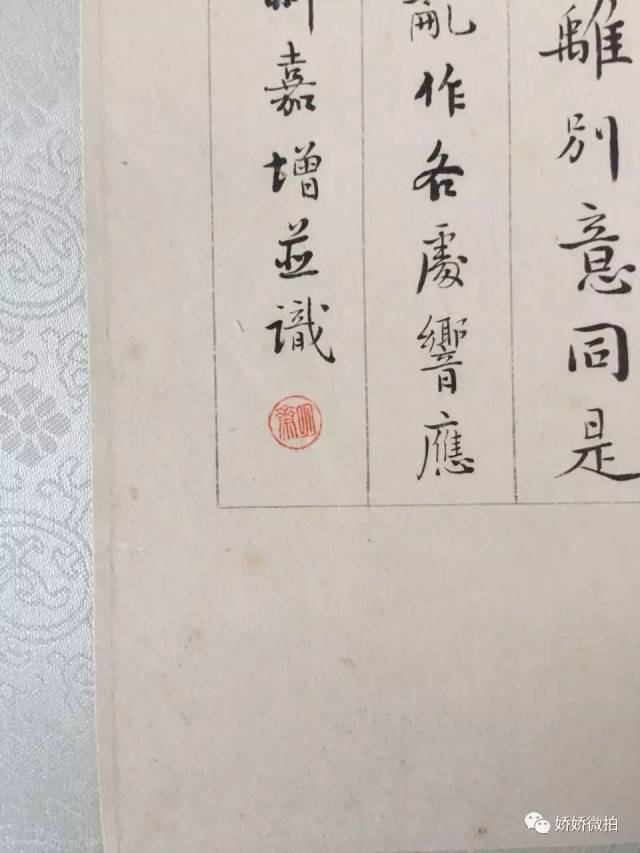 離別意同是
亂作各處響應
嘉增並識
娇娇微拍